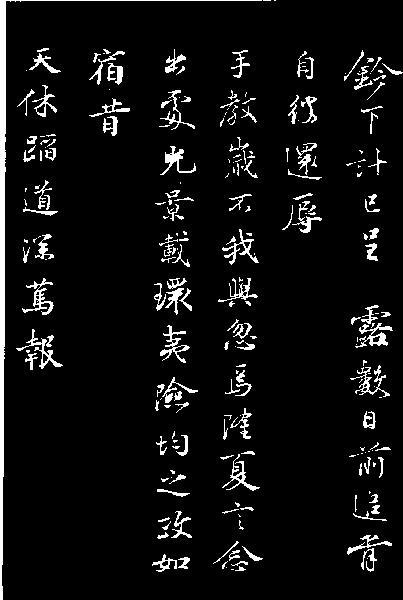 鈴下計已呈 露數日前胥
自彼還辱
手教歲不我與忽焉隆夏言念
出處光景載環夷險均之政如
宿昔
天休蹈道深篤報